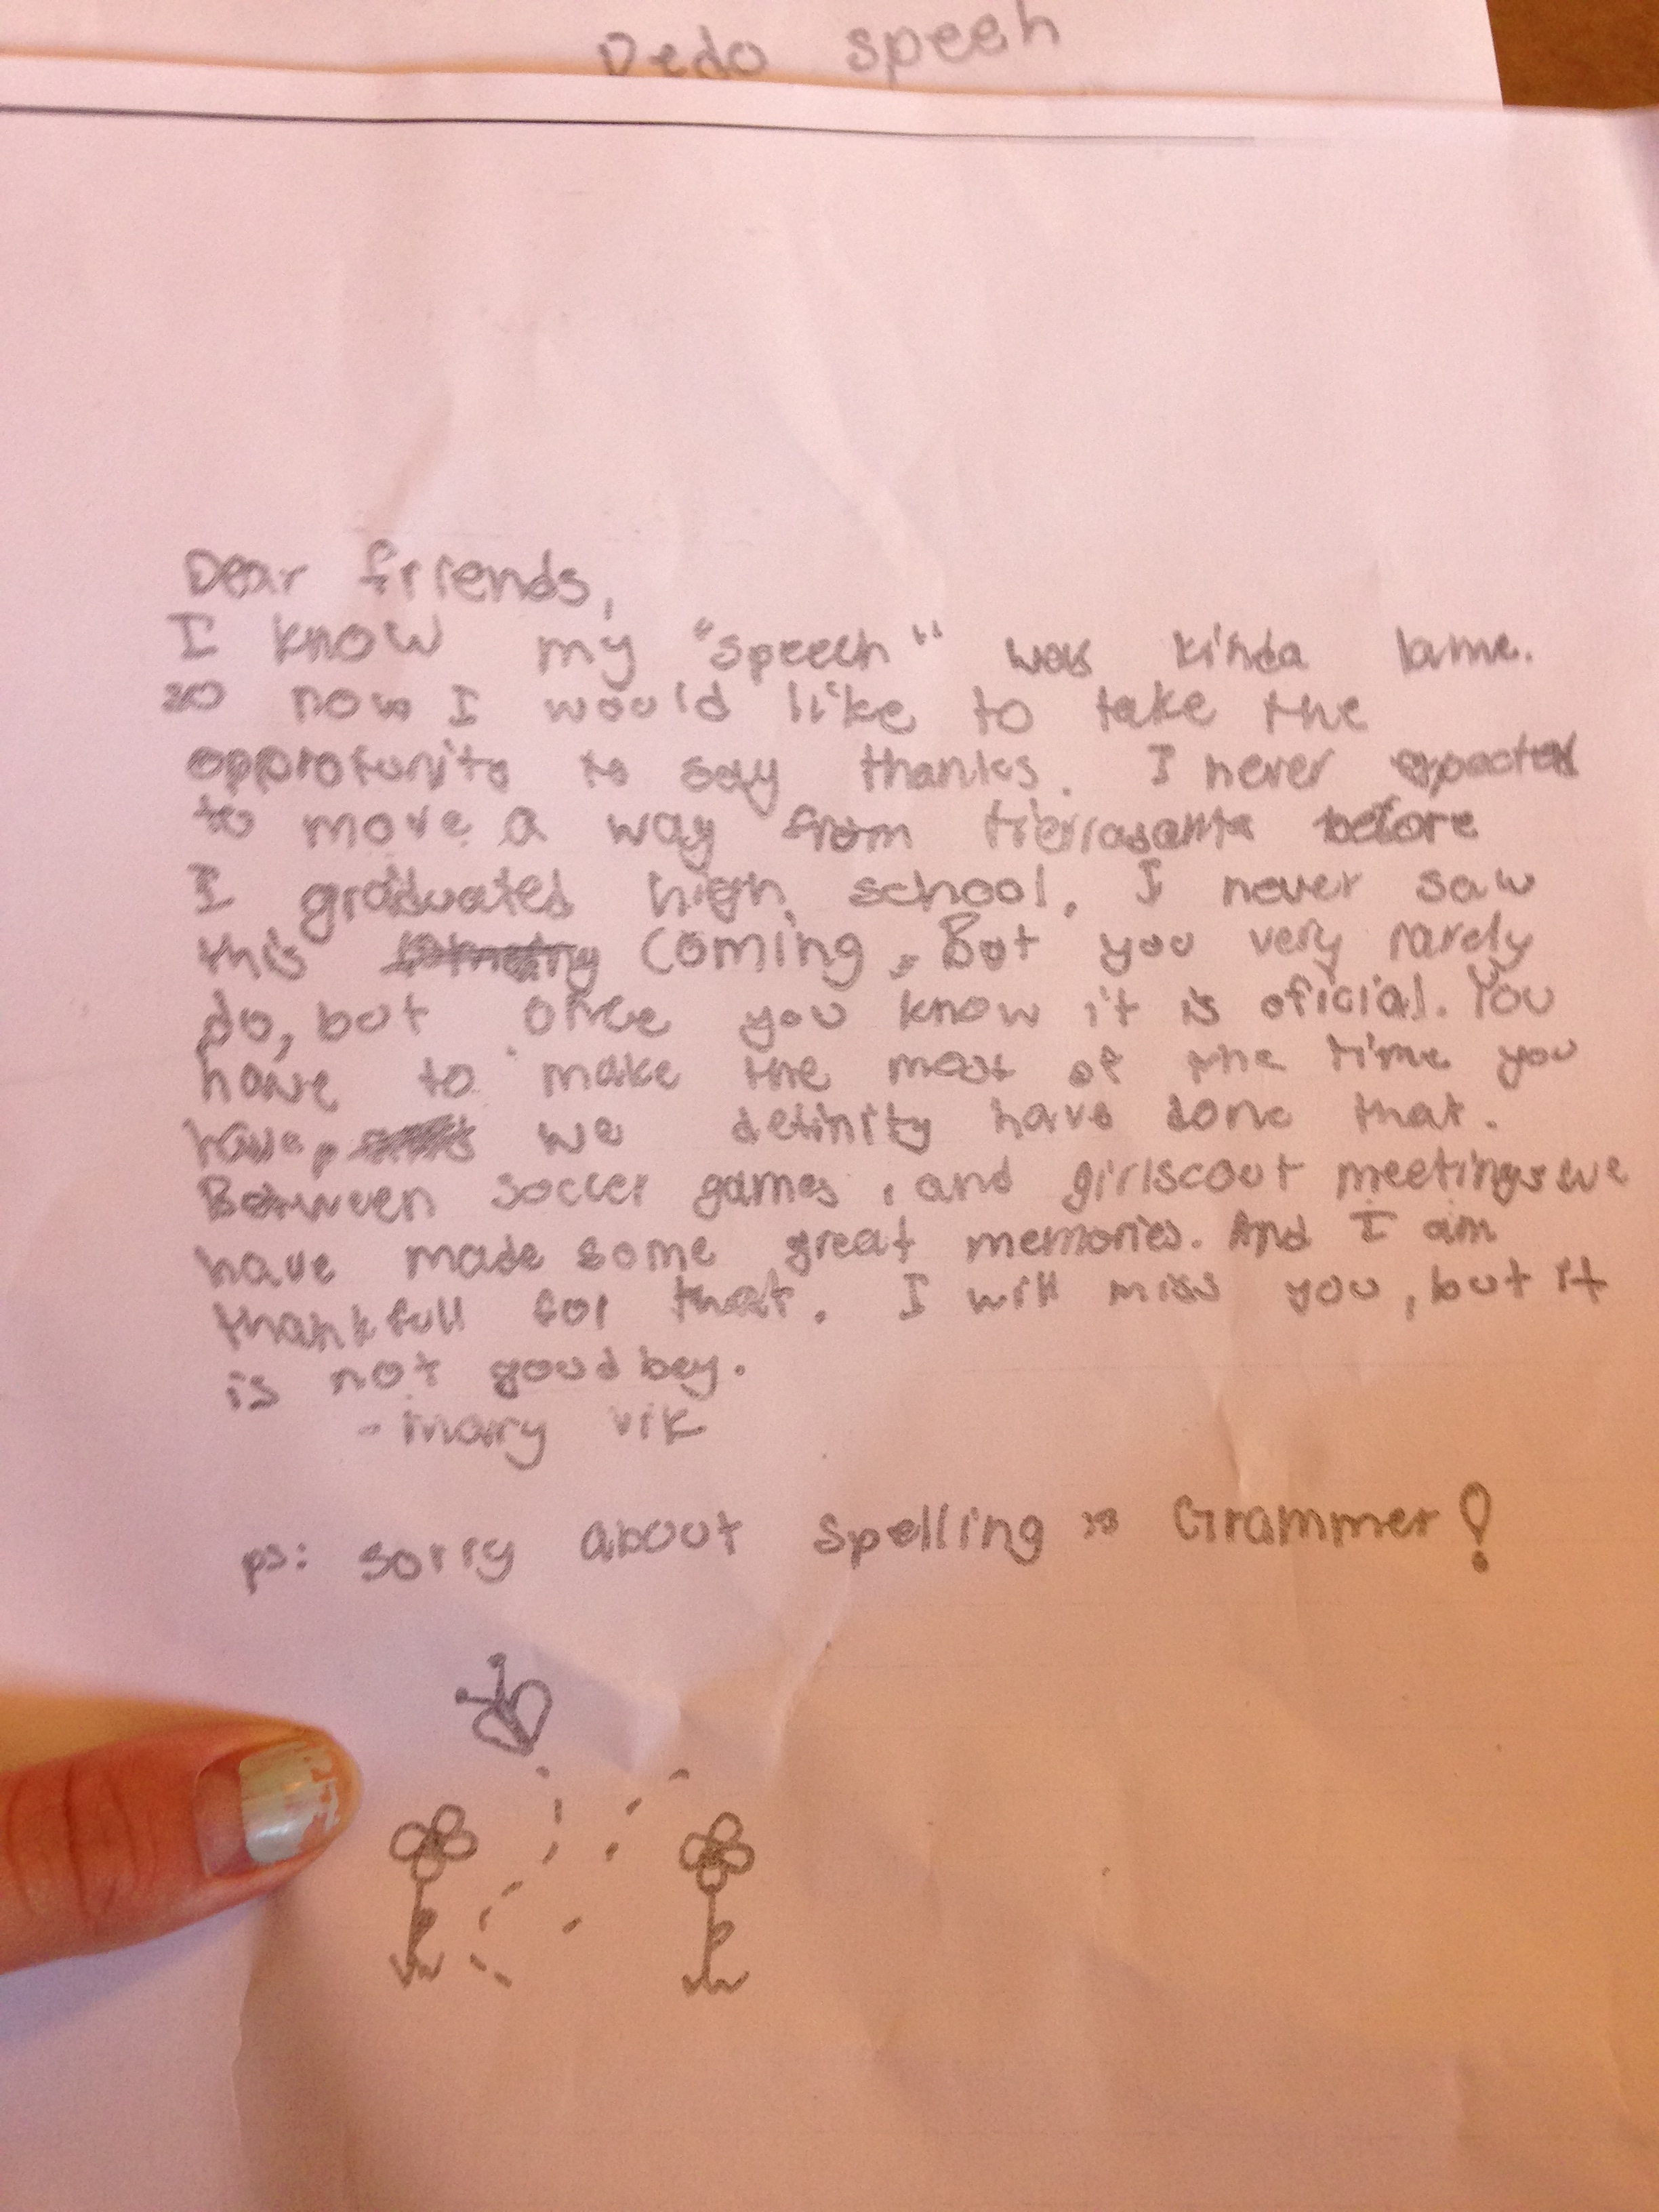 Dedo speeh
Dear friends,
I know my "speech" was kinda lame.
so now I would like to take the
opprotunity to say thanks. I never expected
to move a way from tierrasanta before
I graduated high school. I never saw
this coming. But you very rarely
do, but once you know it is oficial. You
have to make the most of the time you
have, we definity have done that.
Between soccer games, and girlscout meetings we
have made some great memories. And I am
thankfull for that. I will miss you, but it
is not good bey.
- mary vik
ps: sorry about spelling & Grammer!